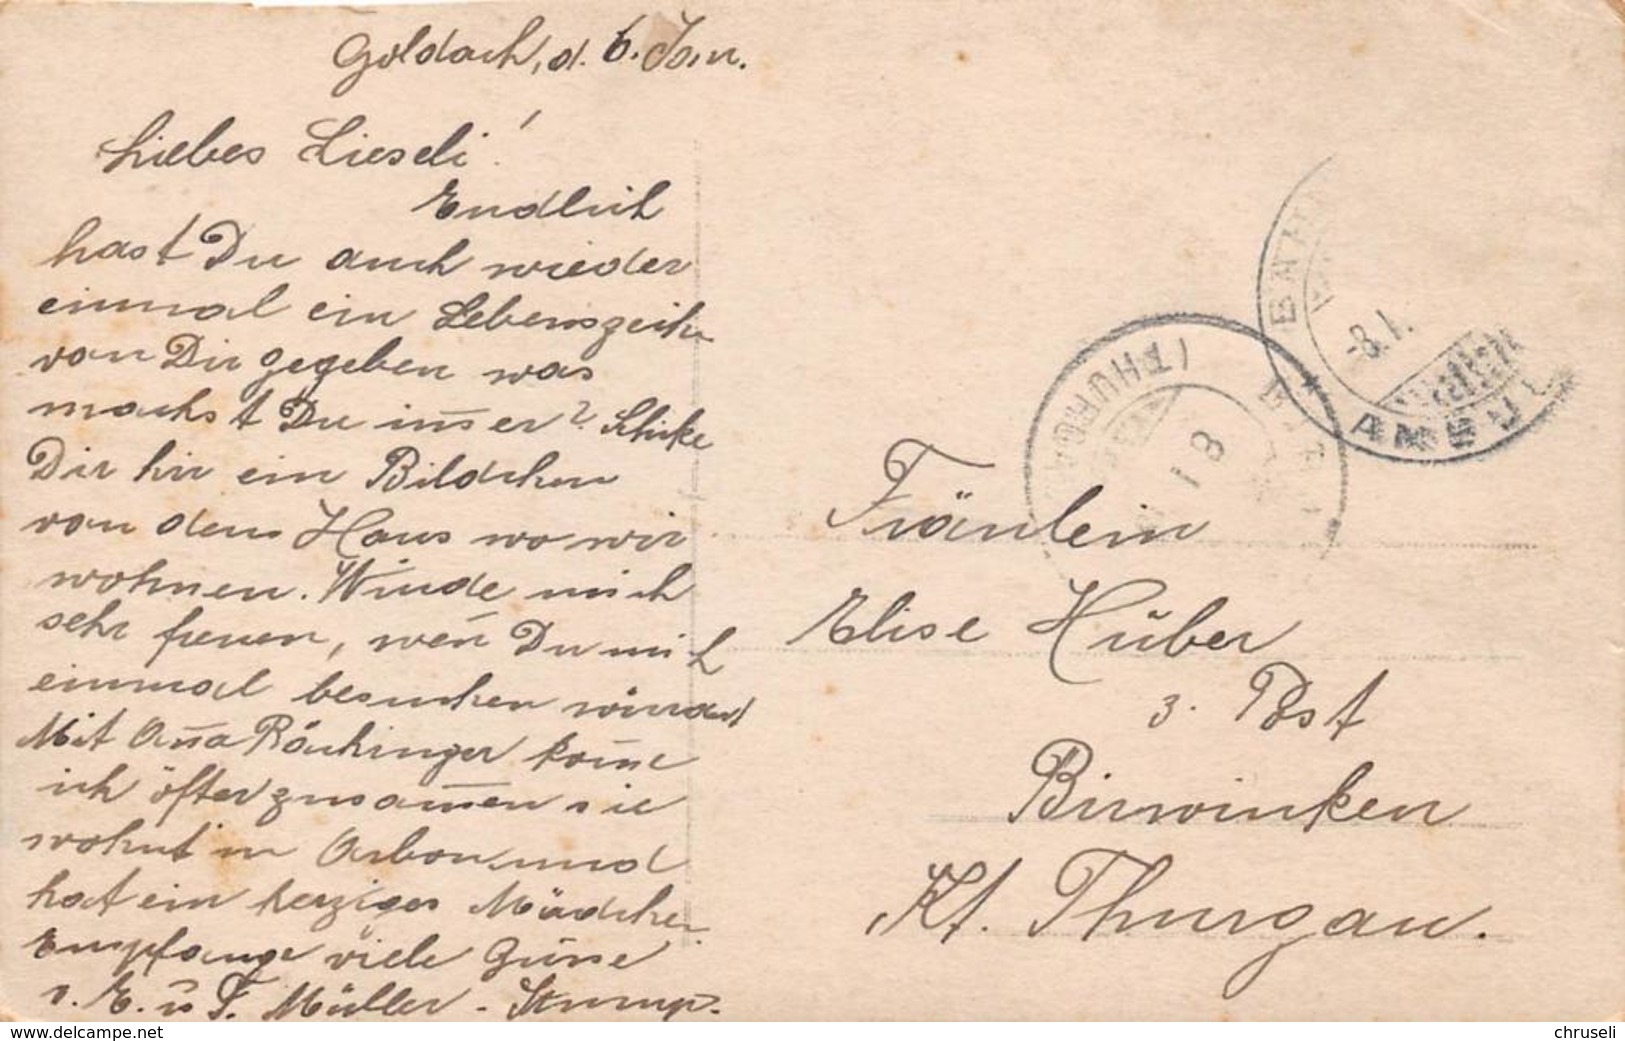 Goldach, d. 6. Jan.
Liebes Lieseli!
Endlich
hast Du auch wieder
einmal ein Lebenszeich
von Dir gegeben was
machst Du im̅er? Schicke
Dir hir ein Bildchen
von dem Haus wo wir
wohnen. Würde mich
sehr freuen, wen̅ Du mich
einmal besuchen würdest
Mit An̅a Röchinger kom̅e
ich öfter zusam̅en sie
wohnt in Arbon und
hat ein herziges Mädchen.
Empfange viele Grüsse
v. E. u F. Müller - Stump.
(THURGAU)
8 1
BAHN
-8.1.
AMBUL
Fräulein
Elise Huber
z. Post
Birwinken
Kt. Thurgau.
delcampe.net
chruseli